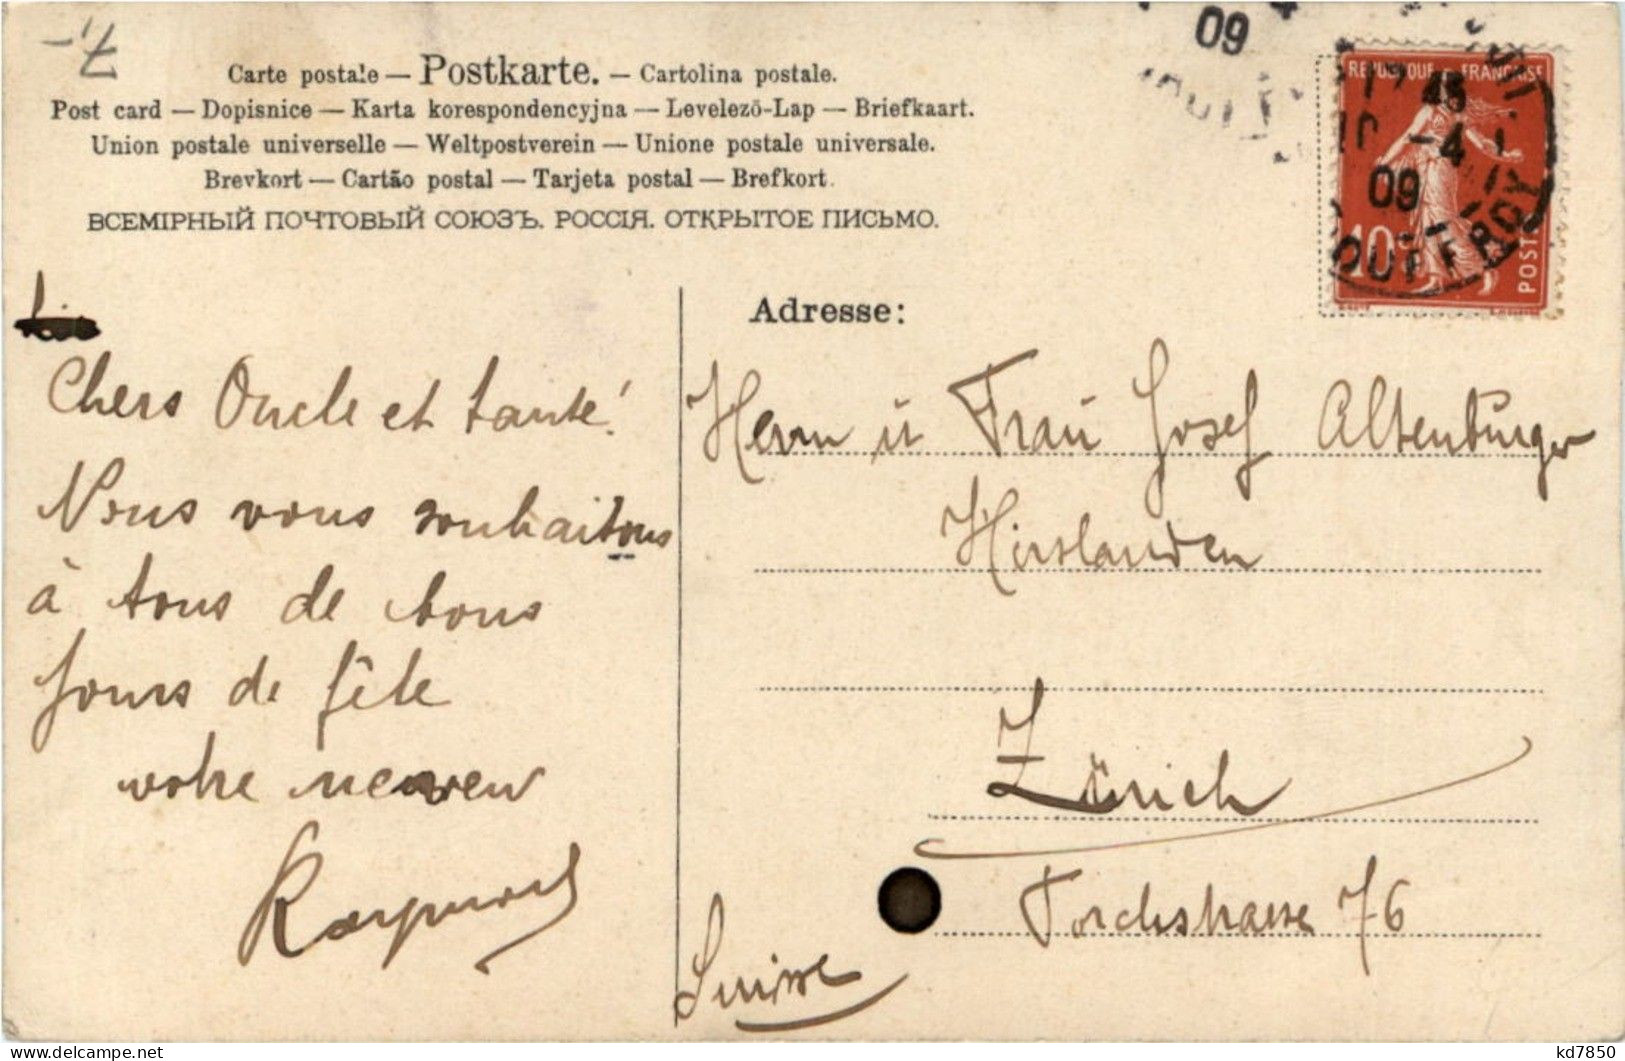 7,-
Carte postale — Postkarte. — Cartolina postale.
Post card — Dopisnice — Karta korespondencyjna — Levelező-Lap — Briefkaart.
Union postale universelle — Weltpostverein — Unione postale universale.
Brevkort — Cartão postal — Tarjeta postal — Brefkort.
ВСЕМІРНЫЙ ПОЧТОВЫЙ СОЮЗЪ. РОССІЯ. ОТКРЫТОЕ ПИСЬМО.
09
REPUBLIQUE FRANÇAISE
45
-4
09
10c
POSTES
Chers Oncle et tante!
Nous vous souhaitons
à tous de bons
jours de fête
votre neveu
Raymond
Adresse:
Herrn u Frau Josef Altenburger
Hirslanden
Zürich
Forchstrasse 76
Suisse
kd7850